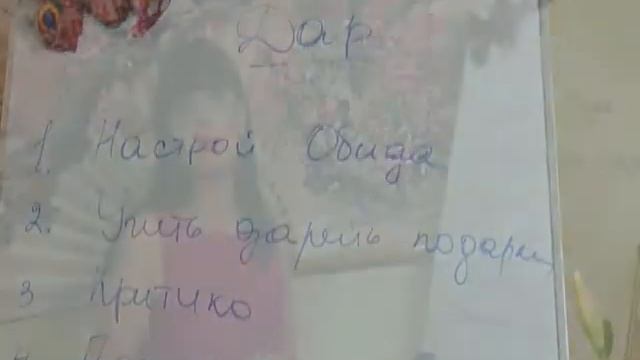 Дар
1. Настрой Обида
2. Учить дарить подарки
3 Критико